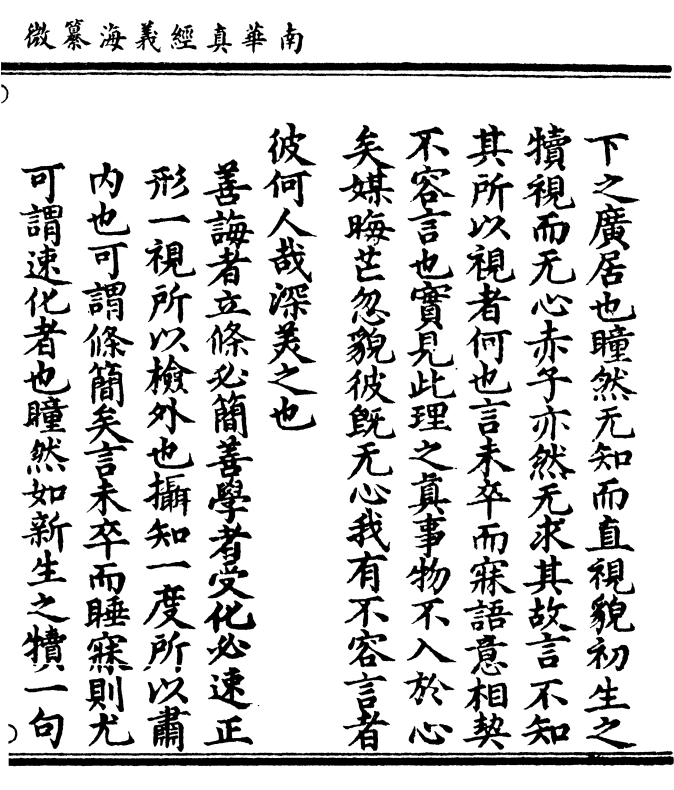 南華真經義海纂微
下之廣居也瞳然无知而直視貌初生之
犢視而无心赤子亦然无求其故言不知
其所以視者何也言未卒而寐語意相契
不容言也實見此理之真事物不入於心
矣媒晦芒忽貌彼既无心我有不容言者
彼何人哉深美之也
善誨者立條必簡善學者受化必速正
形一視所以檢外也攝知一度所以肅
內也可謂條簡矣言未卒而睡寐則尤
可謂速化者也瞳然如新生之犢一句